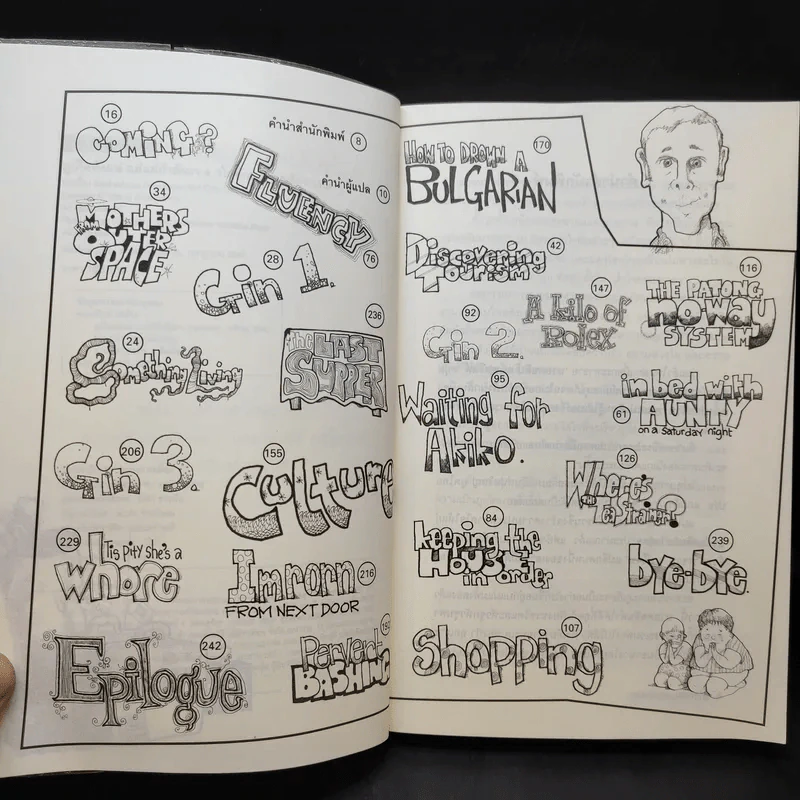 16
COMING?
คำนำสำนักพิมพ์ 8
คำนำผู้แปล 10
FLUENCY
76
34
MOTHERS
OUTER
SPACE
28
Gin 1.
236
the LAST
SUPPER
24
Something Living
206
Gin 3.
155
Culture
229
'Tis pity she's a
whore
Imrorn 216
FROM NEXT DOOR
242
Epilogue
192
Pervert
BASHING
HOW TO DROWN A
BULGARIAN
170
Discovering
Tourism
42
147
A kilo of
Rolex
116
THE PATONG
noway
SYSTEM
92
Gin 2.
95
Waiting for
Akiko.
in bed with
AUNTY
on a saturday night
61
126
Where's
THE
Tea Strainer?
84
keeping the
HOUSE
in order
239
bye-bye.
107
Shopping